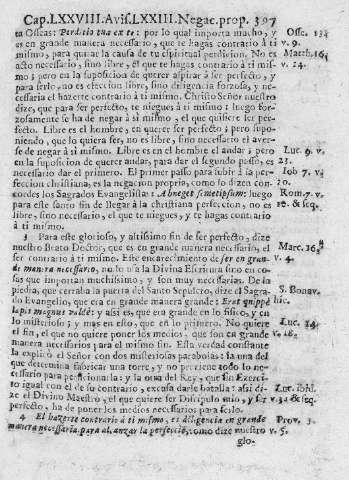 Cap.LXXVIII.Avis.LXXIII.Negac.prop. 397
ta Oseas: Perditio tua ex te: por lo qual importa mucho, y
es en grande manera necessario, que te hagas contrario à ti
mismo, para quitar la causa de tu espiritual perdicion. No es
acto necessario, sino libre, el que te hagas contrario à ti mis-
mo; pero en la suposicion de querer aspirar à ser perfecto, y
para serlo, no es eleccion libre, sino diligencia forzosa, y ne-
cessaria el hazerte contrario à ti mismo. Christo Señor nuestro
dize, que para ser perfecto, te niegues à ti mismo: luego for-
zosamente se ha de negar à si mismo, el que quisiere ser per-
fecto. Libre es el hombre, en querer ser perfecto; pero supo-
niendo, que lo quiera ser, no es libre, sino necessario el aver-
se de negar à si mismo. Libre es el hombre el andar; pero
en la suposicion de querer andar, para dar el segundo passo, es
necessario dar el primero. El primer passo para subir à la per-
feccion christiana, es la negacion propria, como lo dizen con-
cordes los Sagrados Evangelistas: Abneget semetipsum: luego
para este santo fin de llegar à la christiana perfeccion, no es
libre, sino necessario, el que te niegues, y te hagas contrario
à ti mismo.
3 Para este glorioso, y altissimo fin de ser perfecto, dize
nuestro Beato Doctor, que es en grande manera necessario, el
ser contrario à ti mismo. Este encarecimiento de ser en gran-
de manera necessario, no lo usa la Divina Escritura sino en co-
sas que importan muchissimo, y son muy necessarias. De la
piedra, que cerraba la puerta del Santo Sepulcro, dize el Sagra-
do Evangelio, que era en grande manera grande: Erat quippè
lapis magnus valdè: y assi es, que era grande en lo fisico, y en
lo misterioso; y mas en esto, que en lo primero. No quiere
el fin, el que no quiere poner los medios, que son en grande
manera necessarios para el mismo fin. Esta verdad constante
la explicò el Señor con dos misteriosas parabolas: la una del
que determina fabricar una torre, y no previene todo lo ne-
cessario para perficionarla: y la otra del Rey, que sin Exerci-
to igual con el de su contrario, escusa darle batalla: assi di-
ze el Divino Maestro, el que quiere ser Discipulo mio, y ser
perfecto, ha de poner los medios necessarios para serlo.
4 El hazerte contrario à ti mismo, es diligencia en grande
manera necessaria para alcanzar la perfecciò, como dize nuestro
glo-
Osse. 13.
v. 9.
Matth. 16.
v. 24.
Luc. 9. v.
23.
Iob 7. v.
20.
Rom. 7. v.
& seq.
Marc. 16.
v. 4.
S. Bonav.
hic.
Luc. 14.
v. 28.
Luc. ibid.
v. 31. & seq.
Prov. 3.
v. 5.